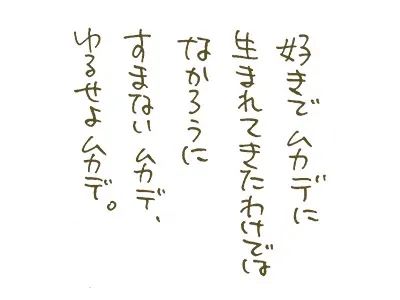 好きで ムカデに
生まれてきたわけでは
なかろうに
すまない ムカデ、
ゆるせよ ムカデ。